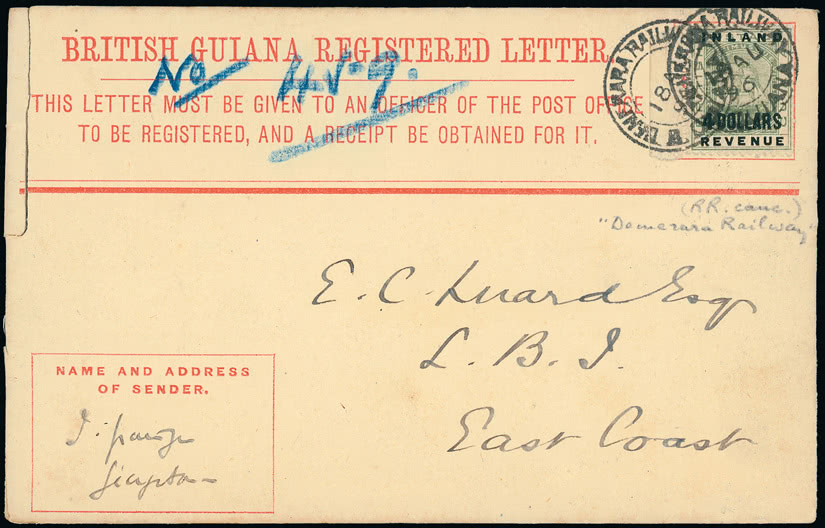 BRITISH GUIANA REGISTERED LETTER.
No
THIS LETTER MUST BE GIVEN TO AN OFFICER OF THE POST OFFICE
TO BE REGISTERED, AND A RECEIPT BE OBTAINED FOR IT.
DEMERARA RAILWAY
A
18
96
INLAND
4 DOLLARS
REVENUE
(RR. canc.)
"Demerara Railway"
E. C. Luard Esq
L. B. I.
East Coast
NAME AND ADDRESS
OF SENDER.